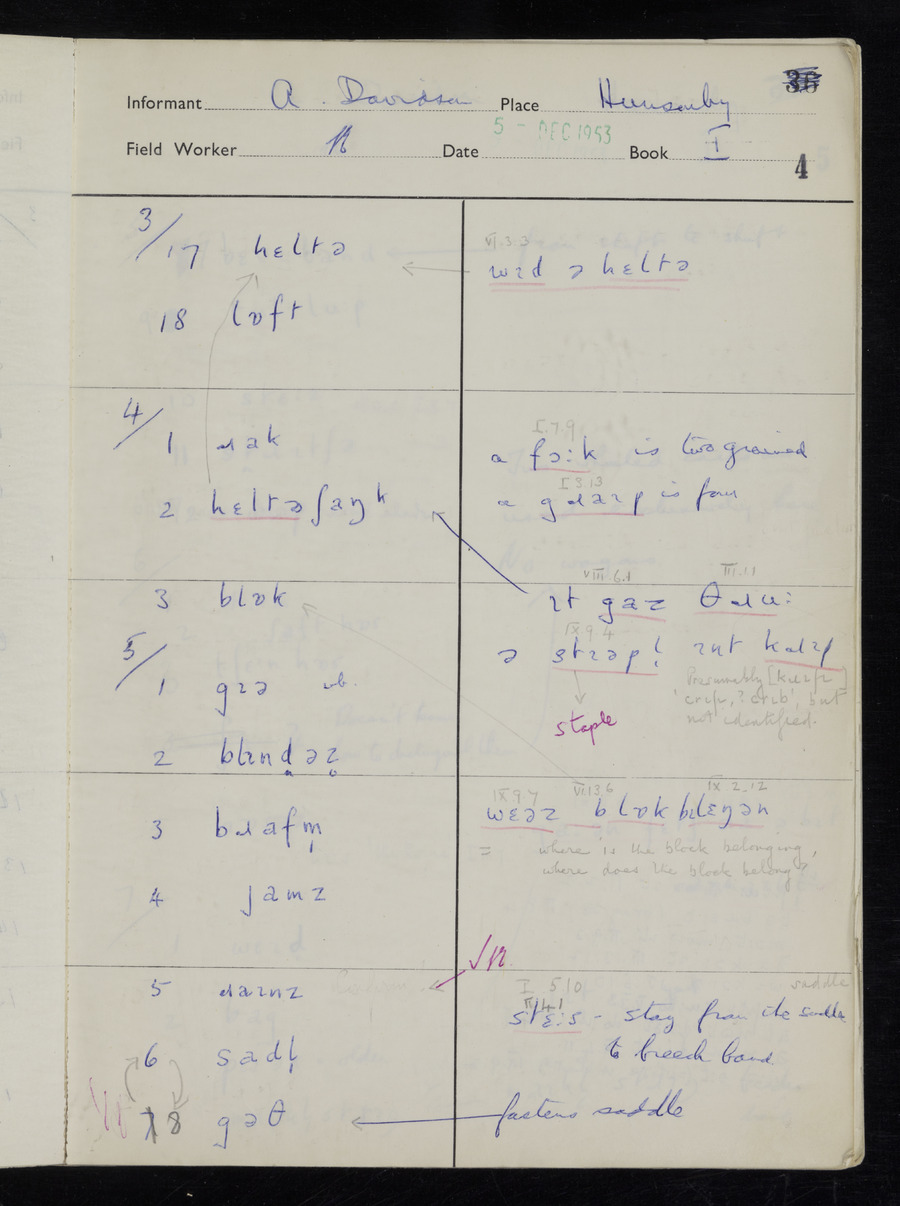 36
Informant A. Davidson Place Hunsonby
5 - DEC 1953
Field Worker Date Book I
4
3/17 hɛltə
18 lɒft
4/1 ɹak
2 hɛltəʃaŋk
3 blɒk
5/1 gɪə vb.
2 blɪndəz
3 bɹafm̩
4 jamz
5 ɹaɪnz
6 sadl̩
8 gəθ
VI.3.3
wɪð ə hɛltə
I.7.9
a fɔ:k is two grained
I 3.13
a gɹaɪp is four
VIII.6.1 III.1.1
ɪt gaz θɹu:
IX 9 4
ə stɪəpl̩ ɪnt kɹɪp
Presumably [kɹɪp]
'crip, ? crib', but
not identified.
staple
IX 9.7 VI.13.6 IX 2.12
wɛəz blɒk blɛŋən
= where is the block belonging,
where does the block belong?
I 5 10 saddle
stɛ:s - stay from the saddle
to breech band
fastens saddle